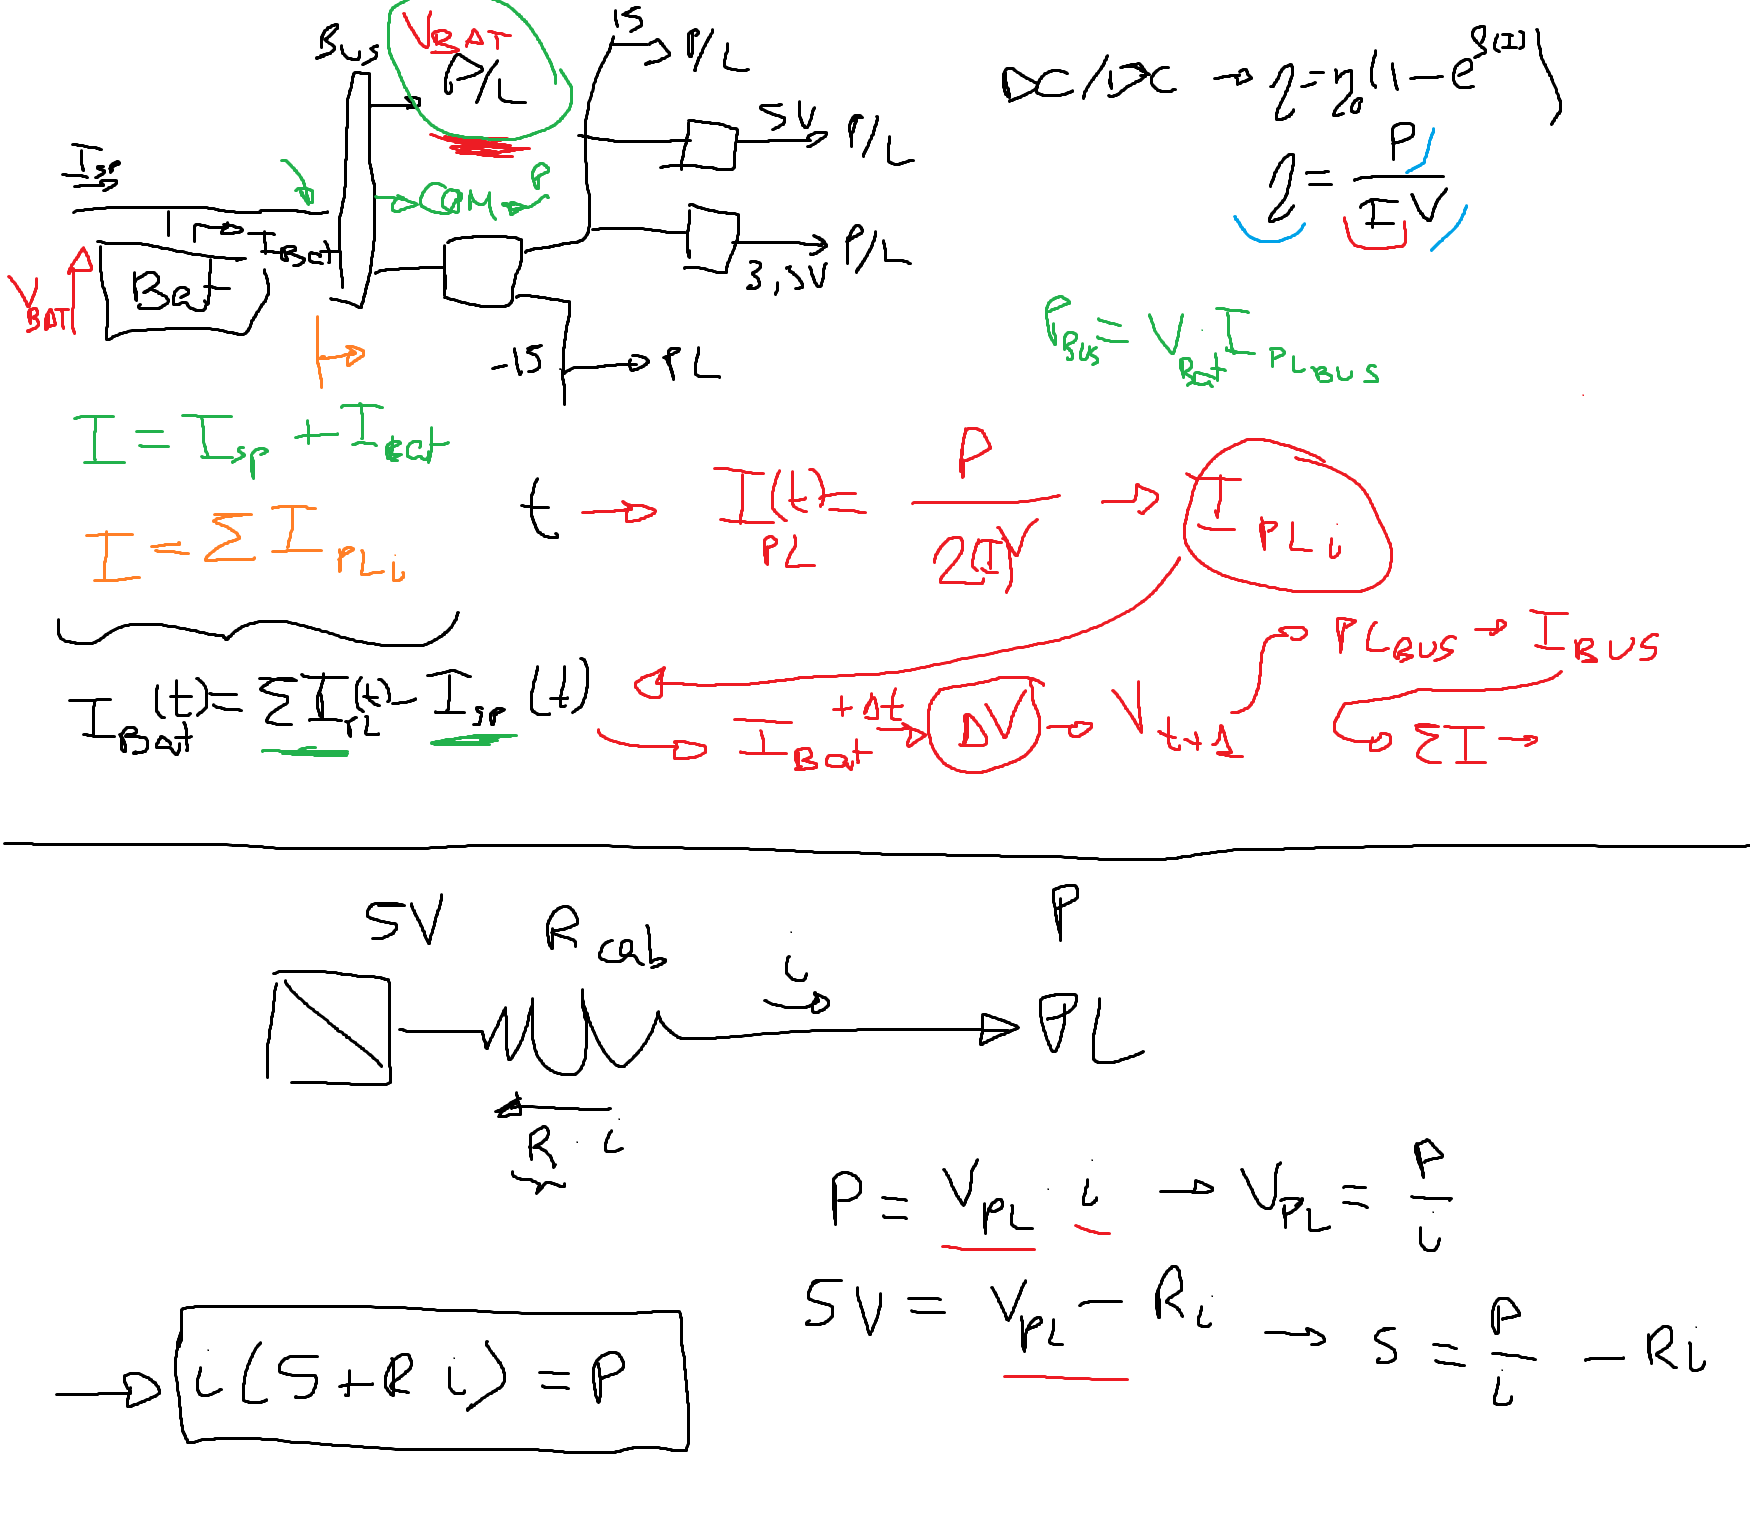 Bus
V_BAT
P/L
15 → P/L
5V → P/L
3,3V → P/L
-15 → PL
COM → P
I_sp
I_Bat
Bat
V_BAT
DC/DC → η = η₀(1 - e^{S(I)})
η = P / (I V)
P_BUS = V_Bat I_PL_BUS
I = I_sp + I_Bat
I = Σ I_PLi
t → I(t)_PL = P / (η(I)V) → I_PLi
I_Bat(t) = Σ I_PL(t) - I_sp(t)
→ I_Bat +Δt → ΔV → V_t+1
→ PL_BUS → I_BUS
→ ΣI →
5V R_cab i P
PL
R · i
P = V_PL · i → V_PL = P / i
5V = V_PL - Ri → 5 = P / i - Ri
→ i(5 + R i) = P